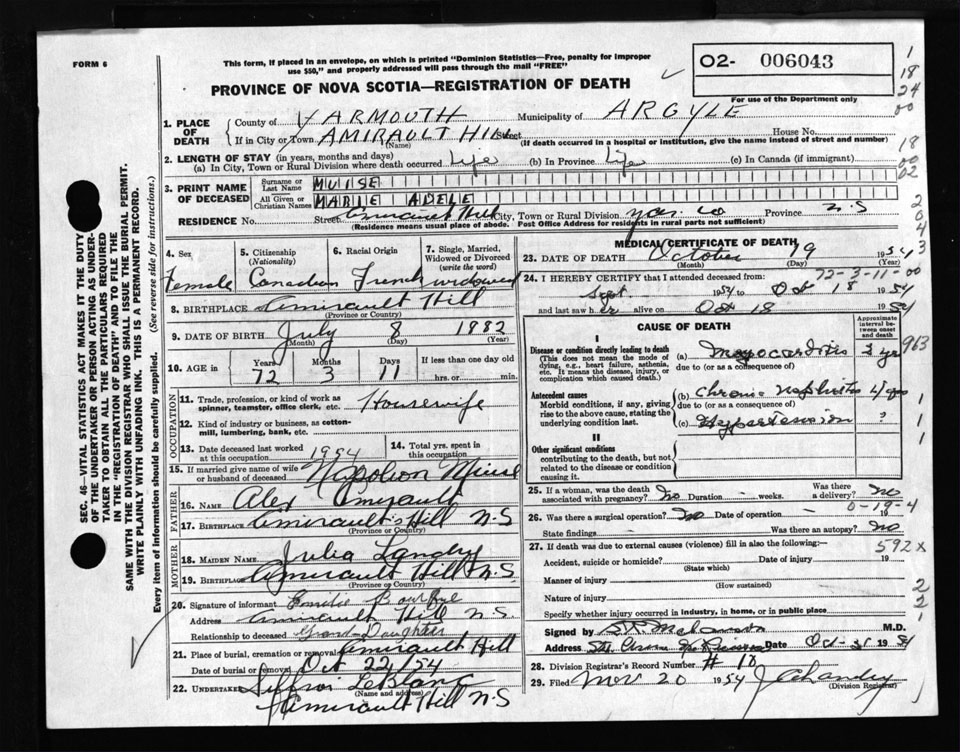 FORM 6
This form, if placed in an envelope, on which is printed "Dominion Statistics—Free, penalty for improper
use $50," and properly addressed will pass through the mail "FREE"
O2- 006043
For use of the Department only
PROVINCE OF NOVA SCOTIA—REGISTRATION OF DEATH
1
18
24
00
18
00
02
2
0
4
3
SEC. 46—VITAL STATISTICS ACT MAKES IT THE DUTY
OF THE UNDERTAKER OR PERSON ACTING AS UNDER-
TAKER TO OBTAIN ALL THE PARTICULARS REQUIRED
IN THE "REGISTRATION OF DEATH" AND TO FILE THE
SAME WITH THE DIVISION REGISTRAR WHO SHALL ISSUE THE BURIAL PERMIT.
WRITE PLAINLY WITH UNFADING INK. THIS IS A PERMANENT RECORD.
Every item of Information should be carefully supplied. (See reverse side for instructions.)
1. PLACE OF DEATH
County of YARMOUTH Municipality of ARGYLE
If in City or Town AMIRAULT HILL Street House No.
(Name) (If death occurred in a hospital or institution, give the name instead of street and number)
2. LENGTH OF STAY (in years, months and days)
(a) In City, Town or Rural Division where death occurred Life (b) In Province Life (c) In Canada (if immigrant)
3. PRINT NAME OF DECEASED
Surname or Last Name MUISE
All Given or Christian Names MARIE ADELE
RESIDENCE No. Street Amirault Hill City, Town or Rural Division Yar Co Province N.S
(Residence means usual place of abode. Post Office Address for residents in rural parts not sufficient)
4. Sex Female
5. Citizenship (Nationality) Canadian
6. Racial Origin French
7. Single, Married, Widowed or Divorced (write the word) widowed
8. BIRTHPLACE Amirault Hill
(Province or Country)
9. DATE OF BIRTH July 8 1882
(Month) (Day) (Year)
10. AGE in Years 72 Months 3 Days 11 If less than one day old hrs. or min.
OCCUPATION
11. Trade, profession, or kind of work as spinner, teamster, office clerk, etc. Housewife
12. Kind of industry or business, as cotton-mill, lumbering, bank, etc.
13. Date deceased last worked at this occupation 1954
14. Total yrs. spent in this occupation
15. If married give name of wife or husband of deceased Napoleon Muise
FATHER
16. NAME Alex Amirault
17. BIRTHPLACE Amirault's Hill N.S
(Province or Country)
MOTHER
18. MAIDEN NAME Julia Landry
19. BIRTHPLACE Amirault Hill N.S
(Province or Country)
20. Signature of informant
Address Amirault Hill N.S.
Relationship to deceased Grand Daughter
21. Place of burial, cremation or removal Amirault Hill
Date of burial or removal Oct 22/54
22. UNDERTAKER LeBlanc
(Name and address)
Amirault Hill N.S
MEDICAL CERTIFICATE OF DEATH
23. DATE OF DEATH October 19 1954
(Month) (Day) (Year)
72-3-11-00
24. I HEREBY CERTIFY that I attended deceased from:
Sept 1954 to Oct 18 1954
and last saw her alive on Oct 18 1954
CAUSE OF DEATH
Approximate interval between onset and death
I
Disease or condition directly leading to death
(This does not mean the mode of dying, e.g., heart failure, asthenia, etc. It means the disease, injury, or complication which caused death.)
(a) Myocarditis 2 yrs
due to (or as a consequence of)
963
Antecedent causes
Morbid conditions, if any, giving rise to the above cause, stating the underlying condition last.
(b) Chronic Nephritis 4 yrs
due to (or as a consequence of)
(c) Hypertension ?
1
1
1
II
Other significant conditions
contributing to the death, but not related to the disease or condition causing it.
25. If a woman, was the death associated with pregnancy? No Duration - weeks. Was there a delivery? no
0-19-4
26. Was there a surgical operation? No Date of operation - 19
State findings Was there an autopsy? No
27. If death was due to external causes (violence) fill in also the following:—
592 x
Accident, suicide or homicide? Date of injury 19
(State which)
Manner of injury
(How sustained)
Nature of injury
2
2
1
Specify whether injury occurred in industry, in home, or in public place
Signed by M.D.
Address Date Oct 1954
28. Division Registrar's Record Number # 18
29. Filed Nov 20 1954
(Division Registrar)